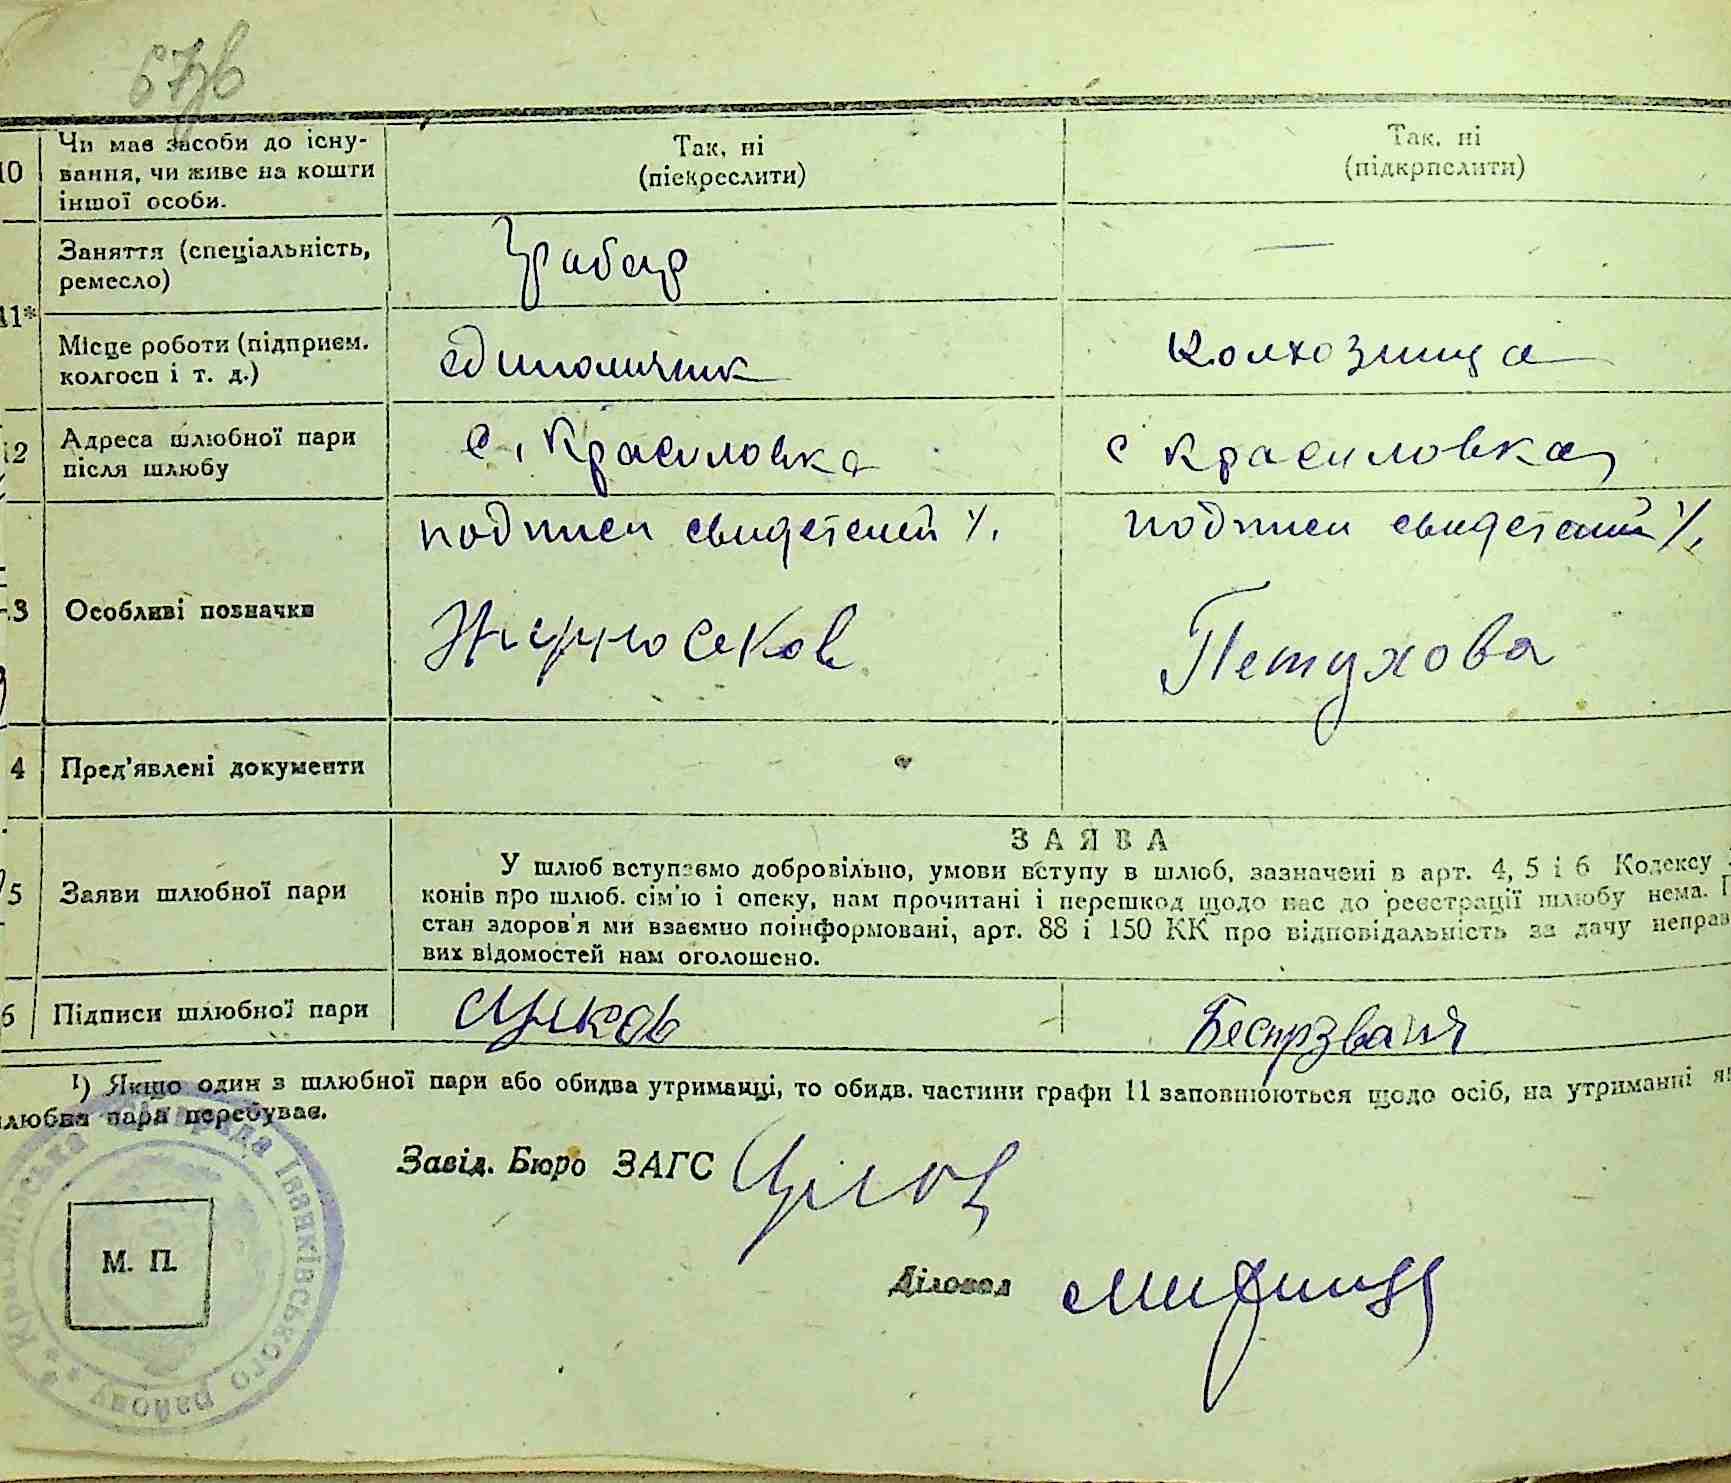 10 Чи має засоби до існу-
вання, чи живе на кошти
іншої особи.
Так, ні
(піекреслити)
Так, ні
(підкрпслити)
11*
Заняття (спеціальність,
ремесло)
Грабар
—
Місце роботи (підприєм.
колгосп і т. д.)
единоличник
Колхозница
12 Адреса шлюбної пари
після шлюбу
С. Красиловка
с Красиловка
3 Особливі позначки
подписи свидетелей 1/.
подписи свидетелей 1/.
Жирносеков
Петухова
4 Пред'явлені документи
5 Заяви шлюбної пари
ЗАЯВА
У шлюб вступаємо добровільно, умови вступу в шлюб, зазначені в арт. 4, 5 і 6 Кодексу
конів про шлюб. сім'ю і опеку, нам прочитані і перешкод щодо нас до реєстрації шлюбу нема. П
стан здоров'я ми взаємно поінформовані, арт. 88 і 150 КК про відповідальність за дачу неправ
вих відомостей нам оголошено.
6 Підписи шлюбної пари
¹) Якщо один з шлюбної пари або обидва утриманці, то обидв. частини графи 11 заповнюються щодо осіб, на утриманні я
любна пара перебуває.
Завід. Бюро ЗАГС
Діловод
М. П.
Іванківського району